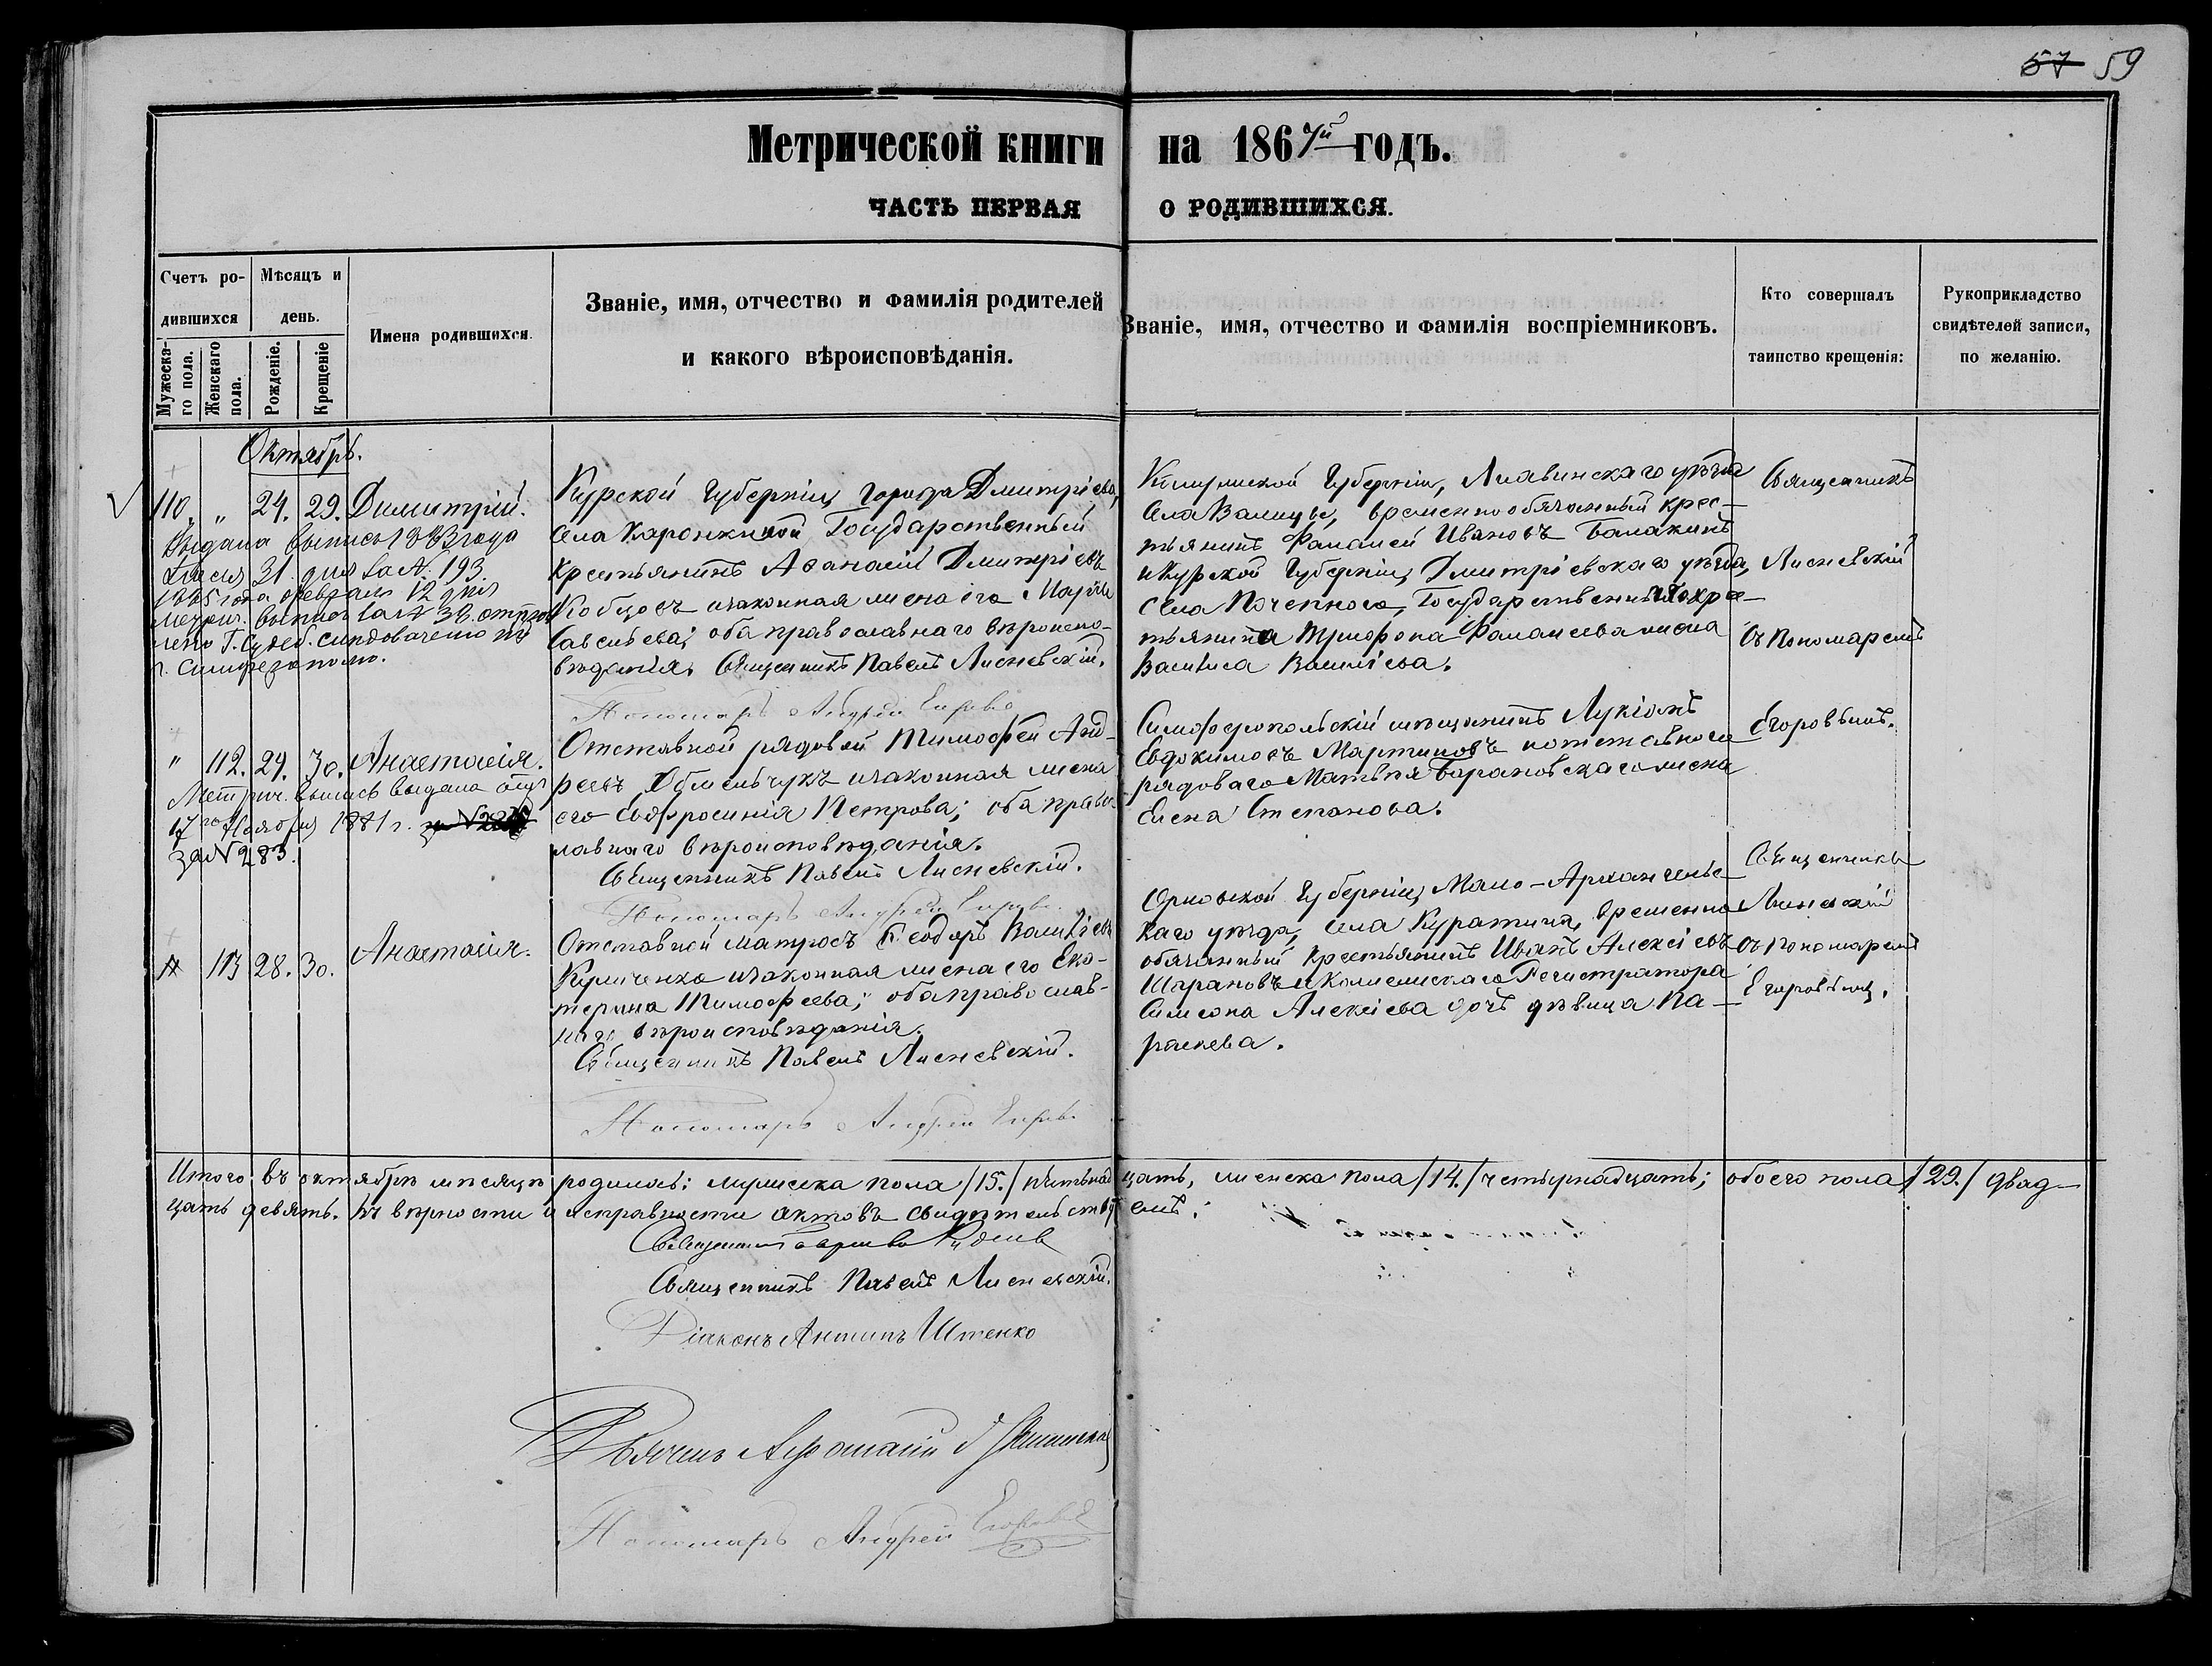 57 59
Метрической книги на 1867й годъ.
ЧАСТЬ ПЕРВАЯ О РОДИВШИХСЯ.
Счетъ ро-
дившихся
Мѣсяцъ и
день.
Мужеска-
го пола.
Женскаго
пола.
Рожденіе.
Крещеніе
Имена родившихся.
Званіе, имя, отчество и фамилія родителей
и какого вѣроисповѣданія.
Званіе, имя, отчество и фамилія воспріемниковъ.
Кто совершалъ
таинство крещенія:
Рукоприкладство
свидѣтелей записи,
по желанію.
Октябрь.
110 „ 24. 29. Димитрій.
Выдана выпись 1883 года
31 дня за №. 193.
1885 года февраля 12 дня
метрич. выпись за №
г. Симферополю.
Курской Губерніи, города Дмитріева,
села Государственный
крестьянинъ Аѳанасій Дмитріевъ
Кобцовъ изаконная жена его Марѳа
Савельева; оба православнаго вѣроиспо-
вѣданія. Священникъ Павелъ Лисневскій.
Пономарь Андрей Егоровъ
Губерніи, уѣзда
села временнообязанный крес-
тьянинъ Ивановъ Балакинъ
и Курской Губерніи, Дмитріевскаго уѣзда,
села Почепнаго, Государственнаго кре-
стьянина Трифона жена
Василиса Васильева.
Священникъ
Лисневскій
съ Пономаремъ
Егоровымъ.
„ 112. 29. 30. Анастасія.
Метрич. выпись выдана
17го Ноября 1881 г.
за № 283.
Отставной рядовой Тимофей Анд-
реевъ изаконная жена
его Евфросинія Петрова; оба право-
лавнаго вѣроисповѣданія.
Священникъ Павелъ Лисневскій.
Пономарь Андрей Егоровъ
Симферопольскій мѣщанинъ Лукіанъ
Евдокимовъ Мартиновъ иотставнаго
рядоваго Матвѣя Барановскаго жена
Елена Степанова.
113 28. 30. Анастасія.
Отставной матросъ Ѳеодоръ Васильевъ
изаконная жена его Ека-
терина Тимофеева; оба православ-
наго вѣроисповѣданія.
Священникъ Павелъ Лисневскій.
Пономарь Андрей Егоровъ
Орловской Губерніи, Мало-Архангельс-
каго уѣзда, села Куратина, временно
обязанный крестьянинъ Иванъ Алексіевъ
и Колежскаго Регистратора
Симеона Алексіева дочь дѣвица Па-
раскева.
Священникъ
Лисневскій
съ пономаремъ
Егоровымъ.
Итого въ октябрѣ мѣсяцѣ родилось: мужеска пола /15./ пятьнадцать, женска пола /14./ четырнадцать; обоего пола /29./ двад-
цать девять. Въ вѣрности и исправности актовъ свидѣтельствуемъ:
Священникъ
Священникъ Павелъ Лисневскій.
Діаконъ Антипъ Штенко
Дьячекъ
Пономарь Андрей Егоровъ